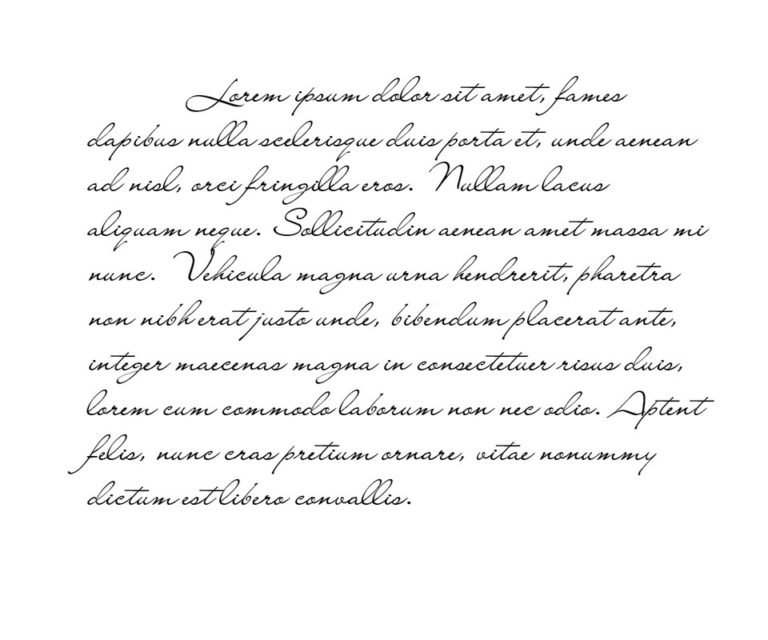 Lorem ipsum dolor sit amet, fames
dapibus nulla scelerisque duis porta et, unde aenean
ad nisl, orci fringilla eros. Nullam lacus
aliquam neque. Sollicitudin aenean amet massa mi
nunc. Vehicula magna urna hendrerit, pharetra
non nibh erat justo unde, bibendum placerat ante,
integer maecenas magna in consectetuer risus duis,
lorem cum commodo laborum non nec odio. Aptent
felis, nunc cras pretium ornare, vitae nonummy
dictum est libero convallis.